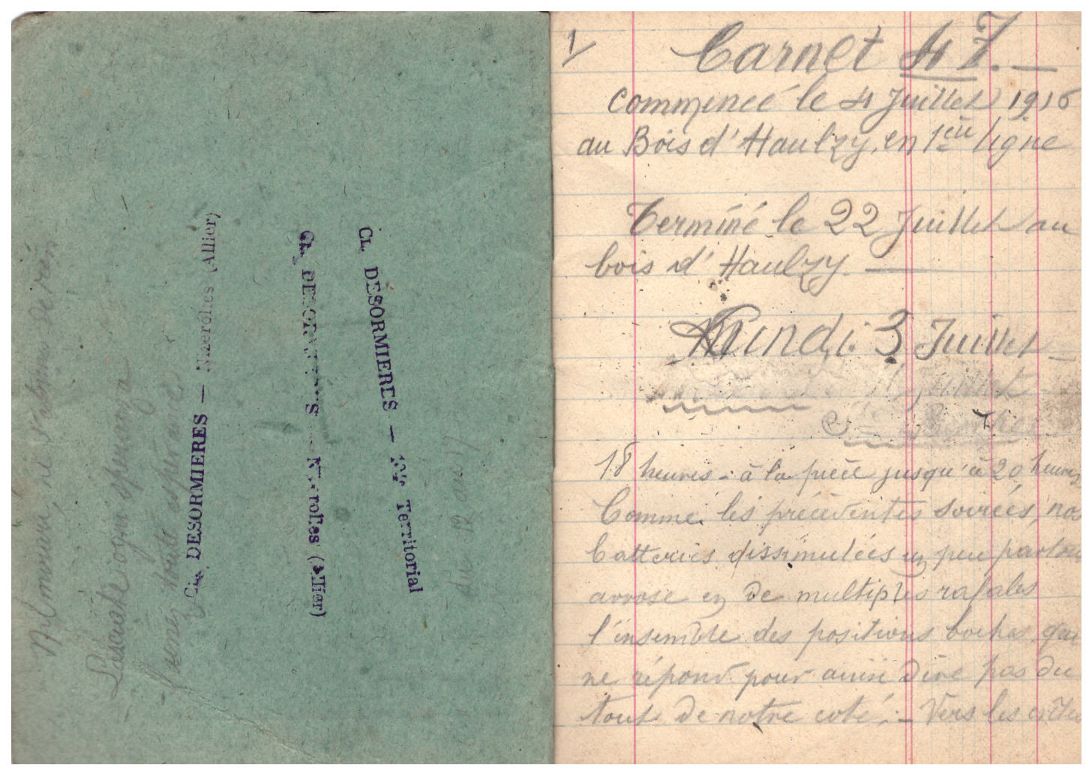 Nil novum,
Lasciate ogni speranza
toute espérance
CL. DESORMIERES — Nizerolles (Allier)
CL. DESORMIERES — Nizerolles (Allier)
CL. DESORMIERES — 104e Territorial
du 12 au 17
1/
Carnet 47.—
commencé le 4 Juillet 1916
au Bois d'Haulzy, en 1ère ligne
Terminé le 22 Juillet au
bois d'Haulzy. —
Lundi 3 Juillet
18 heures - à la pièce jusqu'à 20 heures
Comme les précédentes soirées, nos
batteries dissimulées un peu partout
arrose en de multiples rafales
l'ensemble des positions boches, qui
ne répond pour ainsi dire pas du
tout de notre coté. — Vers les